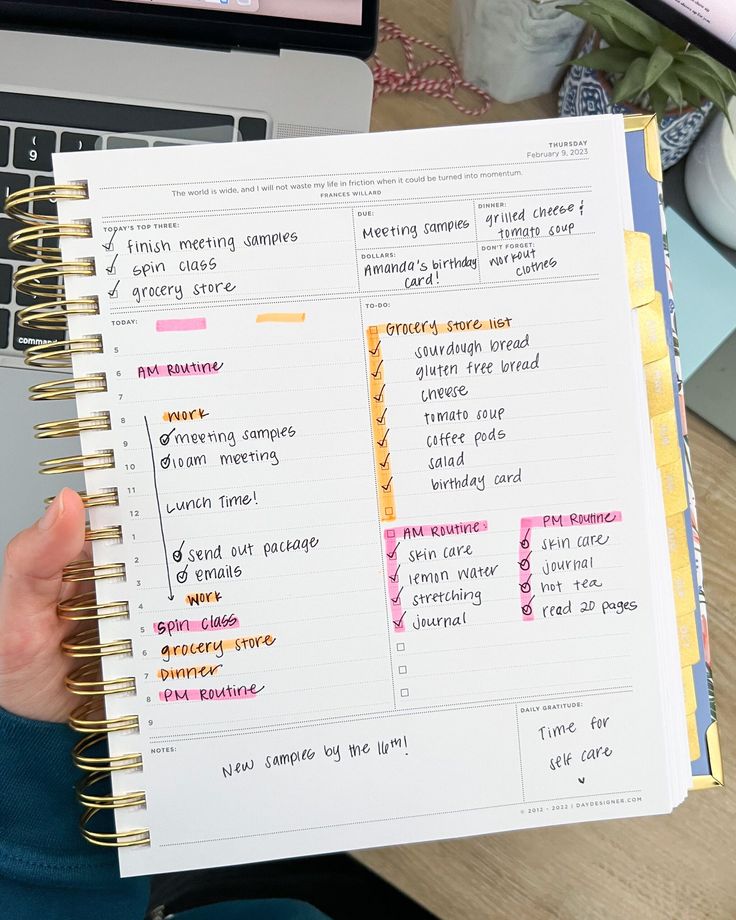 THURSDAY
February 9, 2023
The world is wide, and I will not waste my life in friction when it could be turned into momentum.
FRANCES WILLARD
TODAY'S TOP THREE:
finish meeting samples
spin class
grocery store
DUE:
Meeting samples
DOLLARS:
Amanda's birthday
card!
DINNER:
grilled cheese &
tomato soup
DON'T FORGET:
workout
clothes
TODAY:
5
6 AM Routine
7
8 work
9 meeting samples
10 10am meeting
11
12 Lunch Time!
1
2 send out package
3 emails
4 work
5 spin class
6 grocery store
7 Dinner
8 PM Routine
9
TO-DO:
Grocery store list
sourdough bread
gluten free bread
cheese
tomato soup
coffee pods
salad
birthday card
AM Routine:
skin care
lemon water
stretching
journal
PM Routine
skin care
journal
hot tea
read 20 pages
NOTES:
New samples by the 16th!
DAILY GRATITUDE:
Time for
self care
© 2012 - 2022 | DAYDESIGNER.COM
9
command